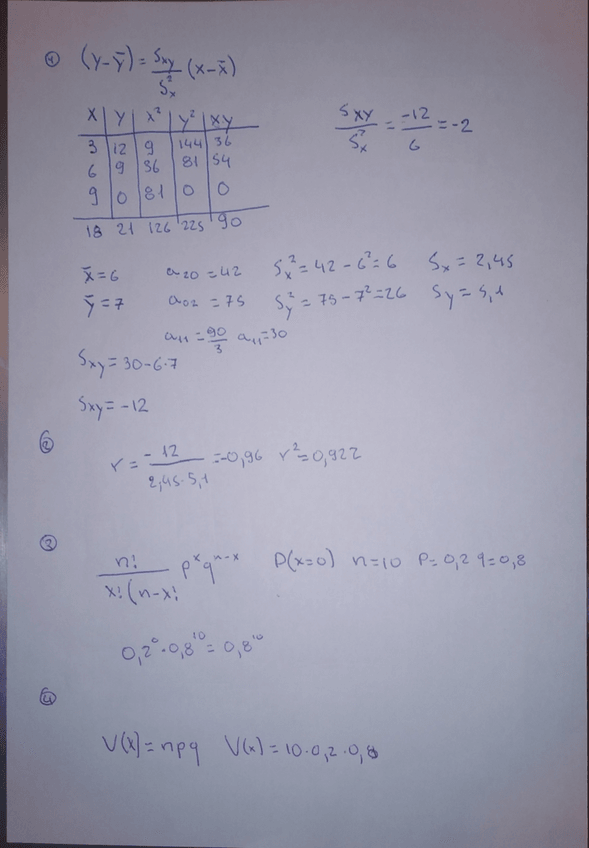 ① (y-ȳ) = Sxy/S²x (x-x̄)
X | Y | x² | y² | xy
3 | 12 | 9 | 144 | 36
6 | 9 | 36 | 81 | 54
9 | 0 | 81 | 0 | 0
18 21 126 225 90
Sxy/S²x = -12/6 = -2
x̄=6 a20=42 S²x=42-6²=6 Sx=2,45
ȳ=7 a02=75 S²y=75-7²=26 Sy=5,1
a11=90/3 a11=30
Sxy=30-6·7
Sxy=-12
② r= -12/2,45·5,1 =-0,96 r²=0,922
③ n!/x!(n-x! p^x q^n-x P(x=0) n=10 P=0,2 q=0,8
0,2⁰·0,8¹⁰=0,8¹⁰
④
V(x)=npq V(x)=10·0,2·0,8